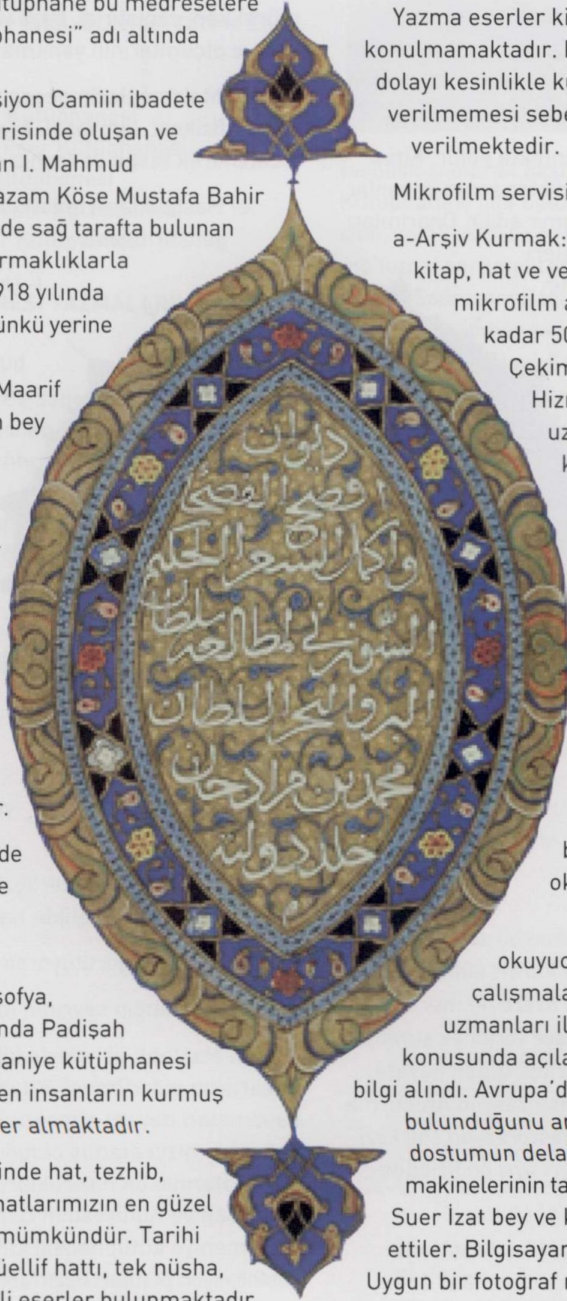 kütüphane bu medreselere
phanesi” adı altında
siyon Camiin ibadete
erisinde oluşan ve
an I. Mahmud
azam Köse Mustafa Bahir
de sağ tarafta bulunan
armaklıklarla
918 yılında
ünkü yerine
Maarif
n bey
r.
de
e
sofya,
nda Padişah
aniye kütüphanesi
en insanların kurmuş
er almaktadır.
inde hat, tezhib,
natlarımızın en güzel
mümkündür. Tarihi
üellif hattı, tek nüsha,
li eserler bulunmaktadır
ديوان
افصح الفصحا
واكمل الشعرا الحكيم
السوزني لمطالعه سلطان
البر والبحر السلطان
محمد بن مراد خان
خلد دولته
Yazma eserler ki
konulmamaktadır.
dolayı kesinlikle ku
verilmemesi sebe
verilmektedir.
Mikrofilm servisi
a-Arşiv Kurmak:
kitap, hat ve ve
mikrofilm a
kadar 50
Çekim
Hizm
uz
k
b
ok
okuyuc
çalışmala
uzmanları il
konusunda açıla
bilgi alındı. Avrupa’d
bulunduğunu ar
dostumun dela
makinelerinin ta
Suer İzat bey ve
ettiler. Bilgisayar
Uygun bir fotoğraf